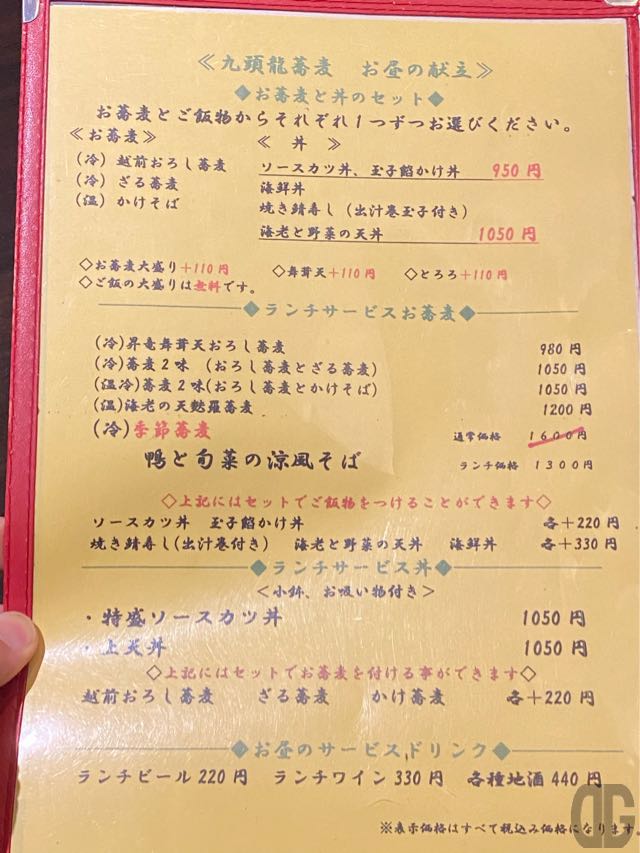 ≪九頭龍蕎麦　お昼の献立≫
◆お蕎麦と丼のセット◆
お蕎麦とご飯物からそれぞれ１つずつお選びください。
≪お蕎麦≫　≪ 丼 ≫
(冷) 越前おろし蕎麦　ソースカツ丼、玉子餡かけ丼　950円
(冷) ざる蕎麦　海鮮丼
(温) かけそば　焼き鯖寿し（出汁巻玉子付き）
海老と野菜の天丼　1050円
◇お蕎麦大盛り＋110円　◇舞茸天＋110円　◇とろろ＋110円
◇ご飯の大盛りは無料です。
◆ランチサービスお蕎麦◆
(冷)昇竜舞茸天おろし蕎麦　980円
(冷)蕎麦２味　(おろし蕎麦とざる蕎麦)　1050円
(温冷)蕎麦２味(おろし蕎麦とかけそば)　1050円
(温)海老の天麩羅蕎麦　1200円
(冷)季節蕎麦　通常価格　1600円
鴨と旬菜の涼風そば　ランチ価格　1300円
◇上記にはセットでご飯物をつけることができます◇
ソースカツ丼　玉子餡かけ丼　各＋220円
焼き鯖寿し(出汁巻付き)　海老と野菜の天丼　海鮮丼　各＋330円
◆ランチサービス丼◆
＜小鉢、お吸い物付き＞
・特盛ソースカツ丼　1050円
・上天丼　1050円
◇上記にはセットでお蕎麦を付ける事ができます◇
越前おろし蕎麦　ざる蕎麦　かけ蕎麦　各＋220円
◆お昼のサービスドリンク◆
ランチビール220円　ランチワイン330円　各種地酒440円
※表示価格はすべて税込み価格になります。
DG